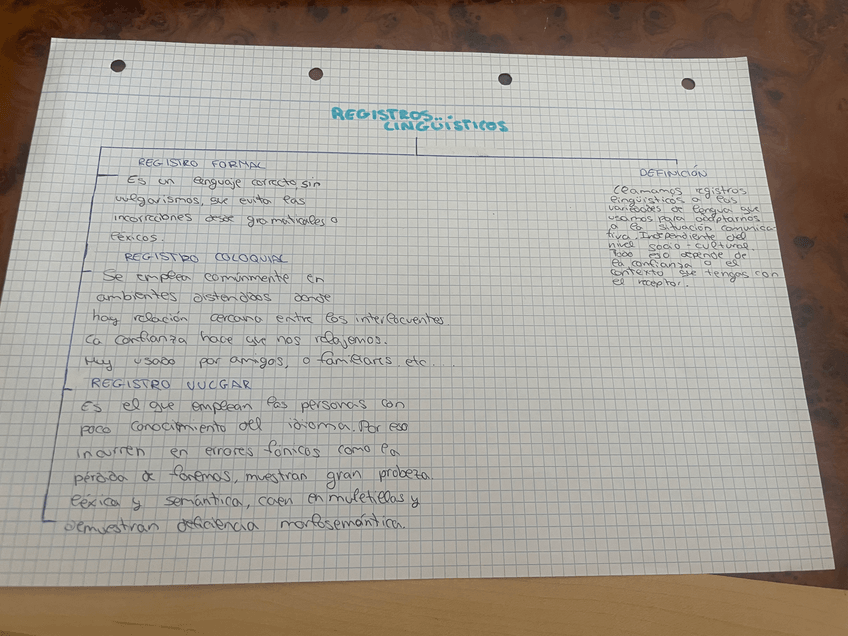 REGISTROS
LINGÜÍSTICOS
REGISTRO FORMAL
Es un lenguaje correcto, sin
vulgarismos, que evita las
incorreciones desde gramaticales o
léxicos.
REGISTRO COLOQUIAL
Se emplea comúnmente en
ambientes distendidos donde
hay relación cercana entre los interlocuentes
La confianza hace que nos relajemos.
Muy usado por amigos, o familiares etc....
REGISTRO VULGAR
Es el que emplean las personas con
poco conocimiento del idioma. Por eso
incurren en errores fónicos como la
pérdida de fonemas, muestran gran probeza
léxica y semántica, caen en muletillas y
demuestran deficiencia morfosemántica.
DEFINICIÓN
Llamamos registros
lingüísticos a las
variedades de lengua que
usamos para adaptarnos
a la situación comunica-
tiva. Independiente del
nivel socio-cultural
Todo eso depende de
la confianza o el
contexto que tengas con
el receptor.